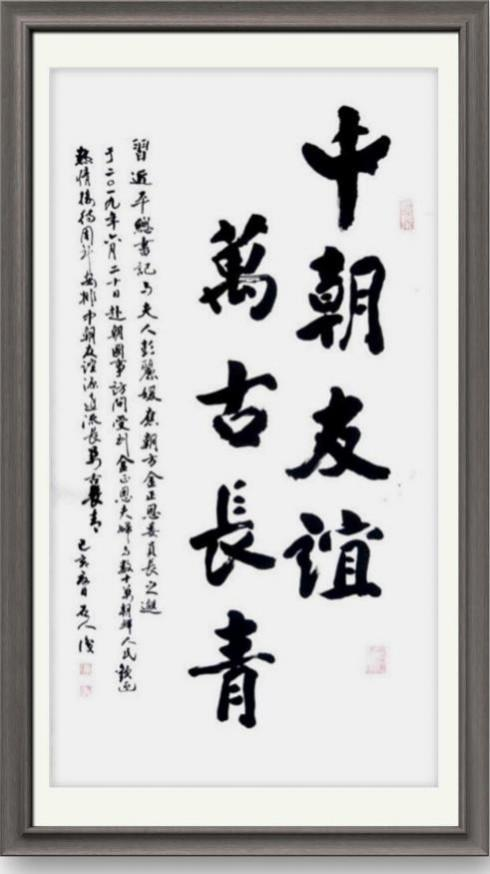 中朝友誼
萬古長青
習近平總書記与夫人彭麗媛應朝方金正恩委員長之邀
于二〇一九年六月二十日赴朝國事訪問受到金正恩夫婦与數十萬朝鮮人民歡迎
熱情接待周到安排中朝友誼源遠流長萬古長青 己亥 日 石人